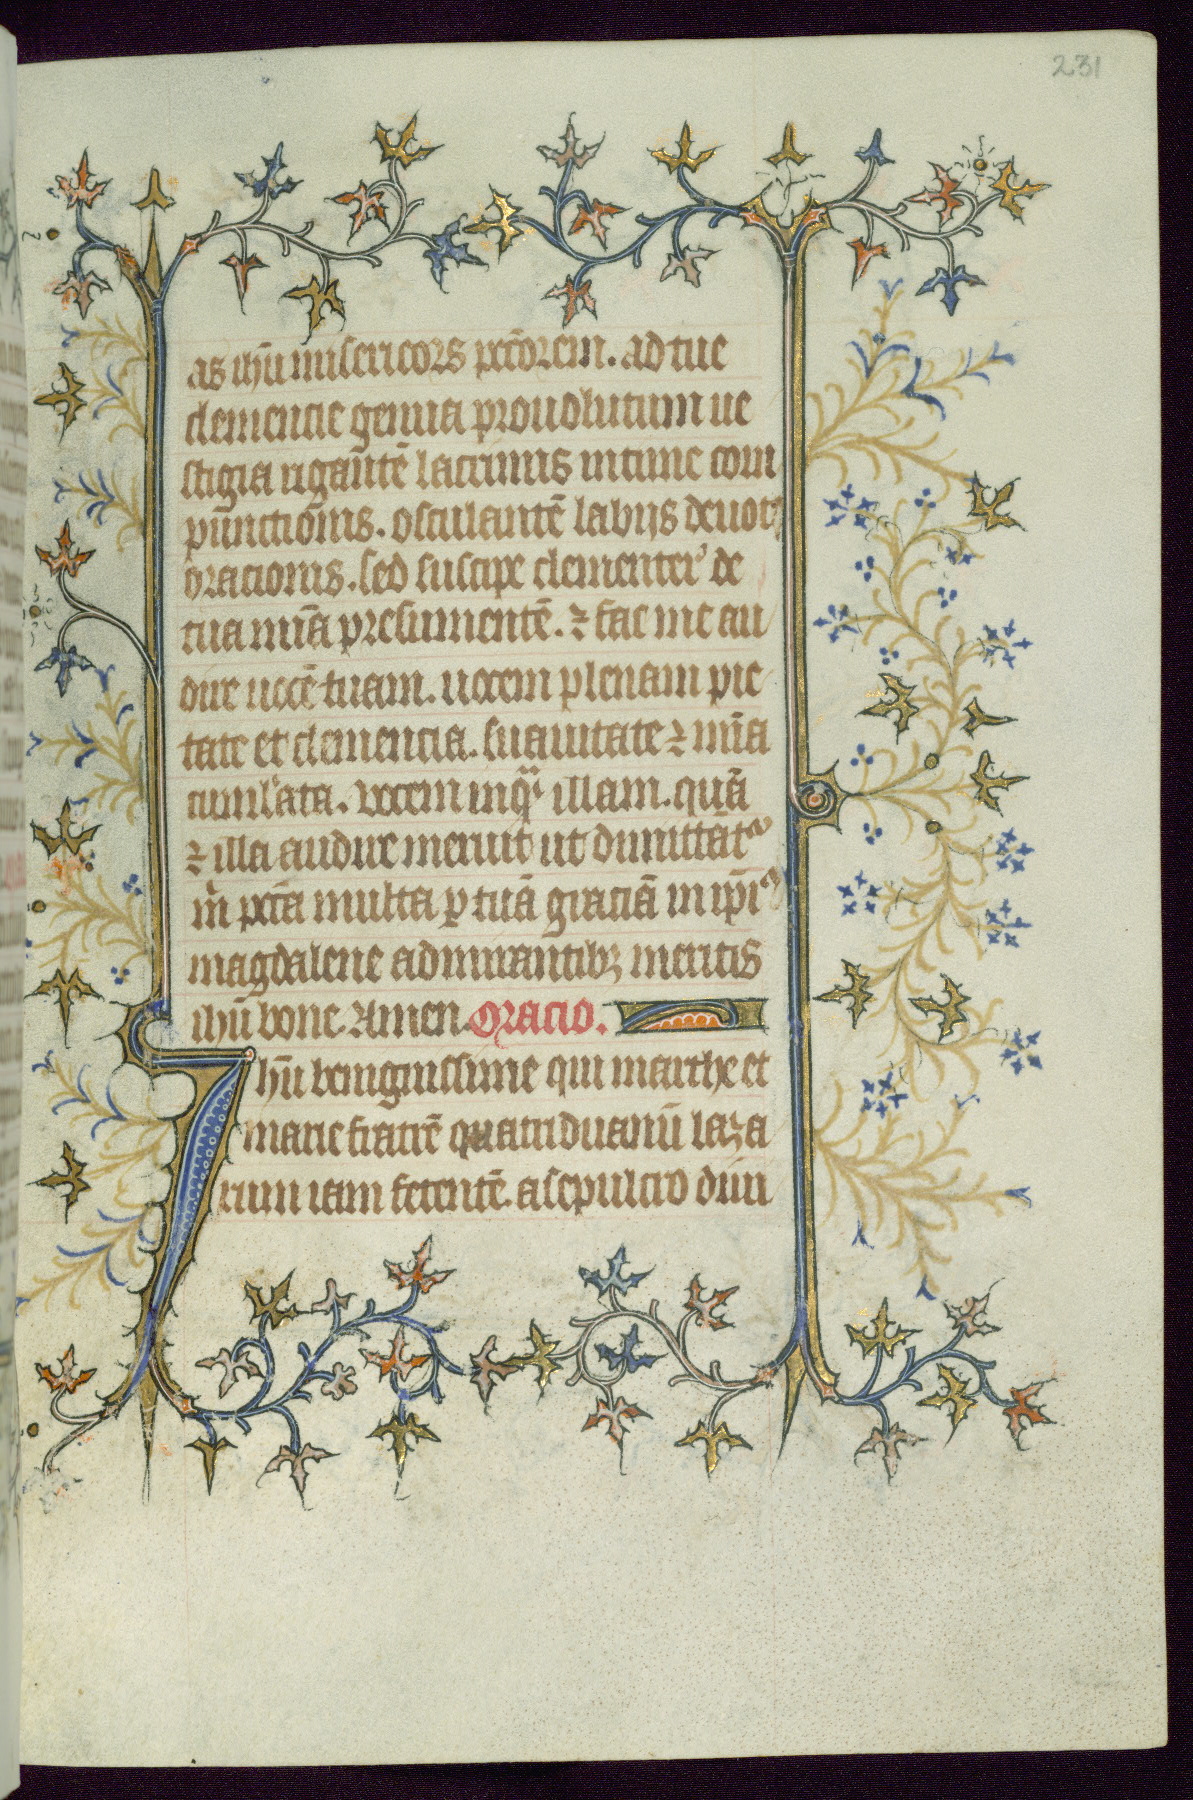 231
as ihū misericors pctōrem. ad tue
clementie genua prouolutum ue
stigia rigantē lacrimis intime com
punctiōnis. osculantē labijs deuote
orationis. sed suscipe clementer de
tua mīa presumentē. ⁊ fac me au
dire uocē tuam. uocem plenam pie
tate et clemencia. suauitate ⁊ mīa
cumlata. vocem inqͣ illam. quā
⁊ illa audire meruit ut dimittāt᷒
m̍ pctā multa ꝑ tuā graciā in ip̄i᷒
magdalene admirantibꝫ meritis
ihū bone. Amen. Oracio.
Ihū benignissime qui marthe et
marie fratrē quatriduanū laza
rum iam fetentē a sepulcro diui